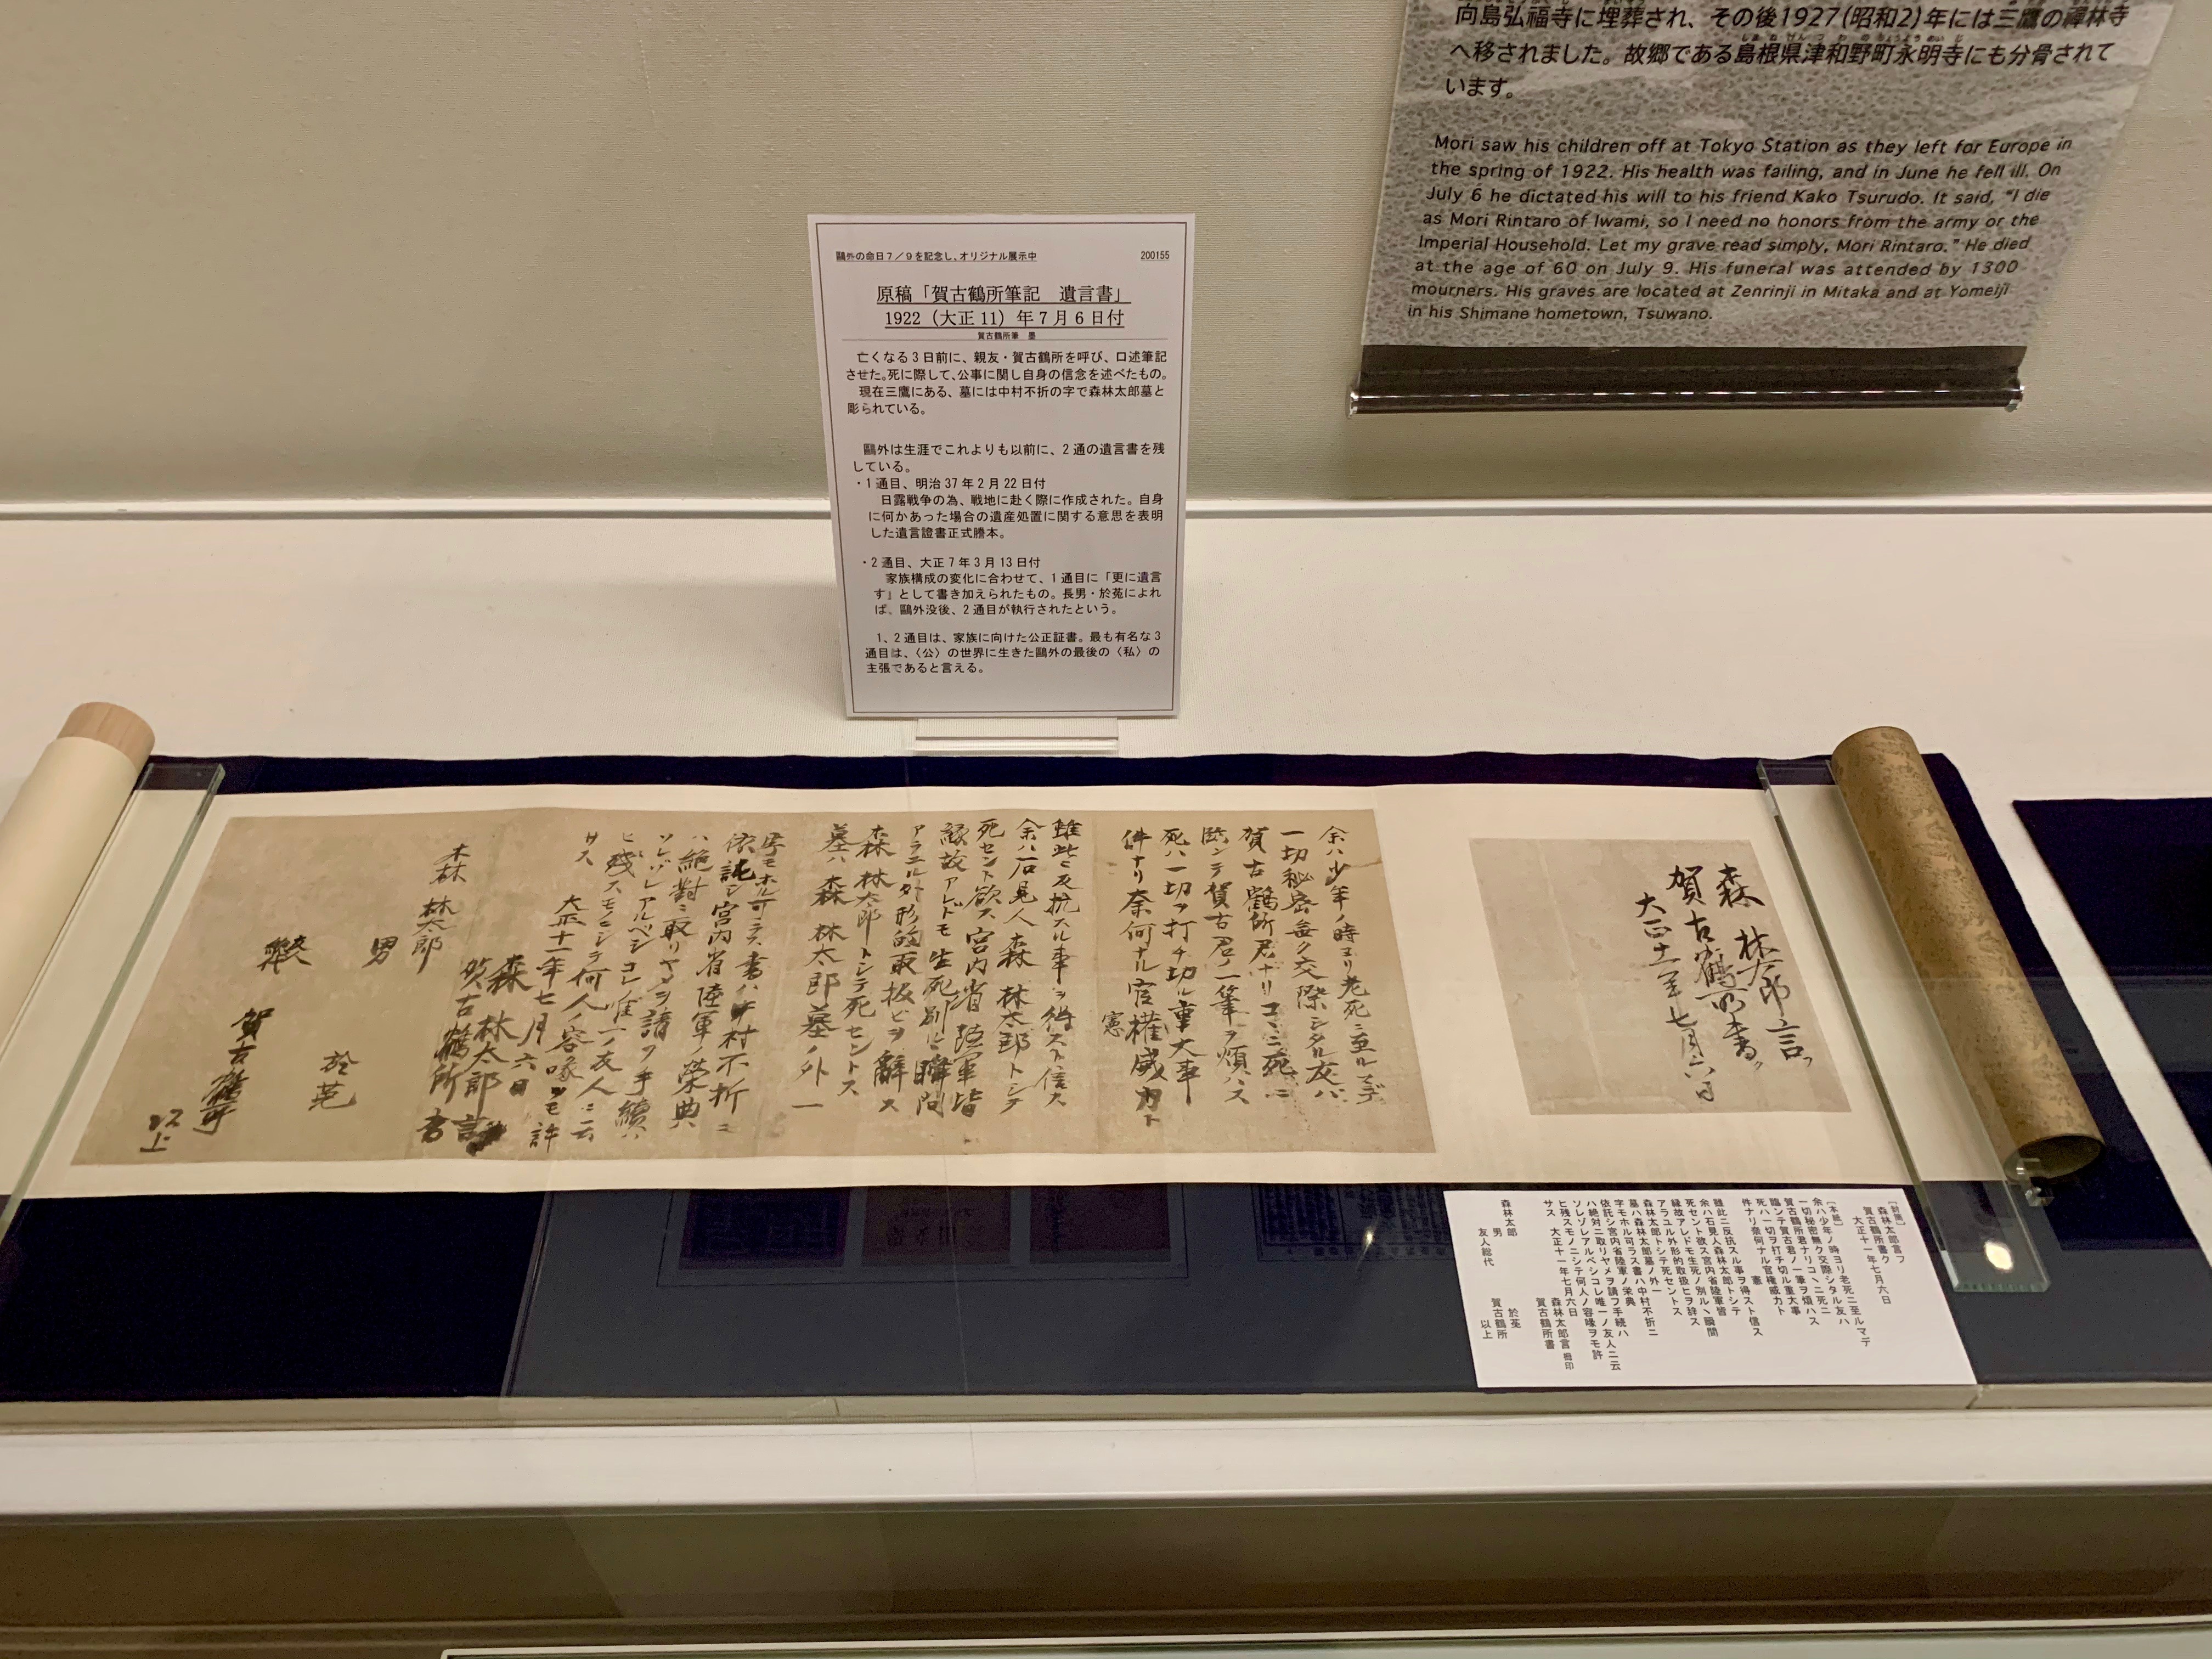 向島弘福寺に埋葬され、その後1927(昭和2)年には三鷹の禅林寺
へ移されました。故郷である島根県津和野町永明寺にも分骨されて
います。
Mori saw his children off at Tokyo Station as they left for Europe in
the spring of 1922. His health was failing, and in June he fell ill. On
July 6 he dictated his will to his friend Kako Tsurudo. It said, “I die
as Mori Rintaro of Iwami, so I need no honors from the army or the
Imperial Household. Let my grave read simply, Mori Rintaro.” He died
at the age of 60 on July 9. His funeral was attended by 1300
mourners. His graves are located at Zenrinji in Mitaka and at Yomeiji
in his Shimane hometown, Tsuwano.
鷗外の命日7/9を記念し、オリジナル展示中
200155
原稿「賀古鶴所筆記　遺言書」
1922（大正11）年7月6日付
賀古鶴所筆　墨
亡くなる3日前に、親友・賀古鶴所を呼び、口述筆記
させた。死に際して、公事に関し自身の信念を述べたもの。
現在三鷹にある、墓には中村不折の字で森林太郎墓と
彫られている。
鷗外は生涯でこれよりも以前に、2通の遺言書を残
している。
・1通目、明治37年2月22日付
日露戦争の為、戦地に赴く際に作成された。自身
に何かあった場合の遺産処置に関する意思を表明
した遺言證書正式謄本。
・2通目、大正7年3月13日付
家族構成の変化に合わせて、1通目に「更に遺言
す」として書き加えられたもの。長男・於菟によれ
ば、鷗外没後、2通目が執行されたという。
1、2通目は、家族に向けた公正証書。最も有名な3
通目は、〈公〉の世界に生きた鷗外の最後の〈私〉の
主張であると言える。
森　林太郎言フ
賀古鶴所書ク
大正十一年七月六日
余ハ少年ノ時ヨリ老死ニ至ルマデ
一切秘密無ク交際シタル友ハ
賀古鶴所君ナリコヽニ死ニ
臨ンテ賀古君ノ一筆ヲ煩ハス
死ハ一切ヲ打チ切ル重大事
件ナリ奈何ナル官憲權威力ト
雖此ニ反抗スル事ヲ得スト信ス
余ハ石見人森　林太郎トシテ
死セント欲ス宮内省陸軍皆
縁故アレドモ生死ノ別ルヽ瞬間
アラユル外形的取扱ヒヲ辭ス
森　林太郎トシテ死セントス
墓ハ森　林太郎墓ノ外一
字モホル可ラス書ハ中村不折ニ
依託シ宮内省陸軍ノ榮典
ハ絶對ニ取リヤメヲ請フ手續ハ
ソレゾレアルベシコレ唯一ノ友人ニ云
ヒ殘スモノニシテ何人ノ容喙ヲモ許
サス
大正十一年七月六日
森　林太郎言
賀古鶴所書
森　林太郎
男　於菟
賀古鶴所
以上
［封筒］
森林太郎言フ
賀古鶴所書ク
大正十一年七月六日
［本紙］
余ハ少年ノ時ヨリ老死ニ至ルマデ
一切秘密無ク交際シタル友ハ
賀古鶴所君ナリコヽニ死ニ
臨ンテ賀古君ノ一筆ヲ煩ハス
死ハ一切ヲ打チ切ル重大事
件ナリ奈何ナル官憲権威力ト
雖此ニ反抗スル事ヲ得スト信ス
余ハ石見人森林太郎トシテ
死セント欲ス宮内省陸軍皆
縁故アレドモ生死ノ別ルヽ瞬間
アラユル外形的取扱ヒヲ辞ス
森林太郎トシテ死セントス
墓ハ森林太郎墓ノ外一
字モホル可ラス書ハ中村不折ニ
依託シ宮内省陸軍ノ栄典
ハ絶対ニ取リヤメヲ請フ手続ハ
ソレゾレアルベシコレ唯一ノ友人ニ云
ヒ残スモノニシテ何人ノ容喙ヲモ許
サス
大正十一年七月六日
森林太郎言　拇印
賀古鶴所書
森林太郎
男　於菟
友人総代　賀古鶴所
以上